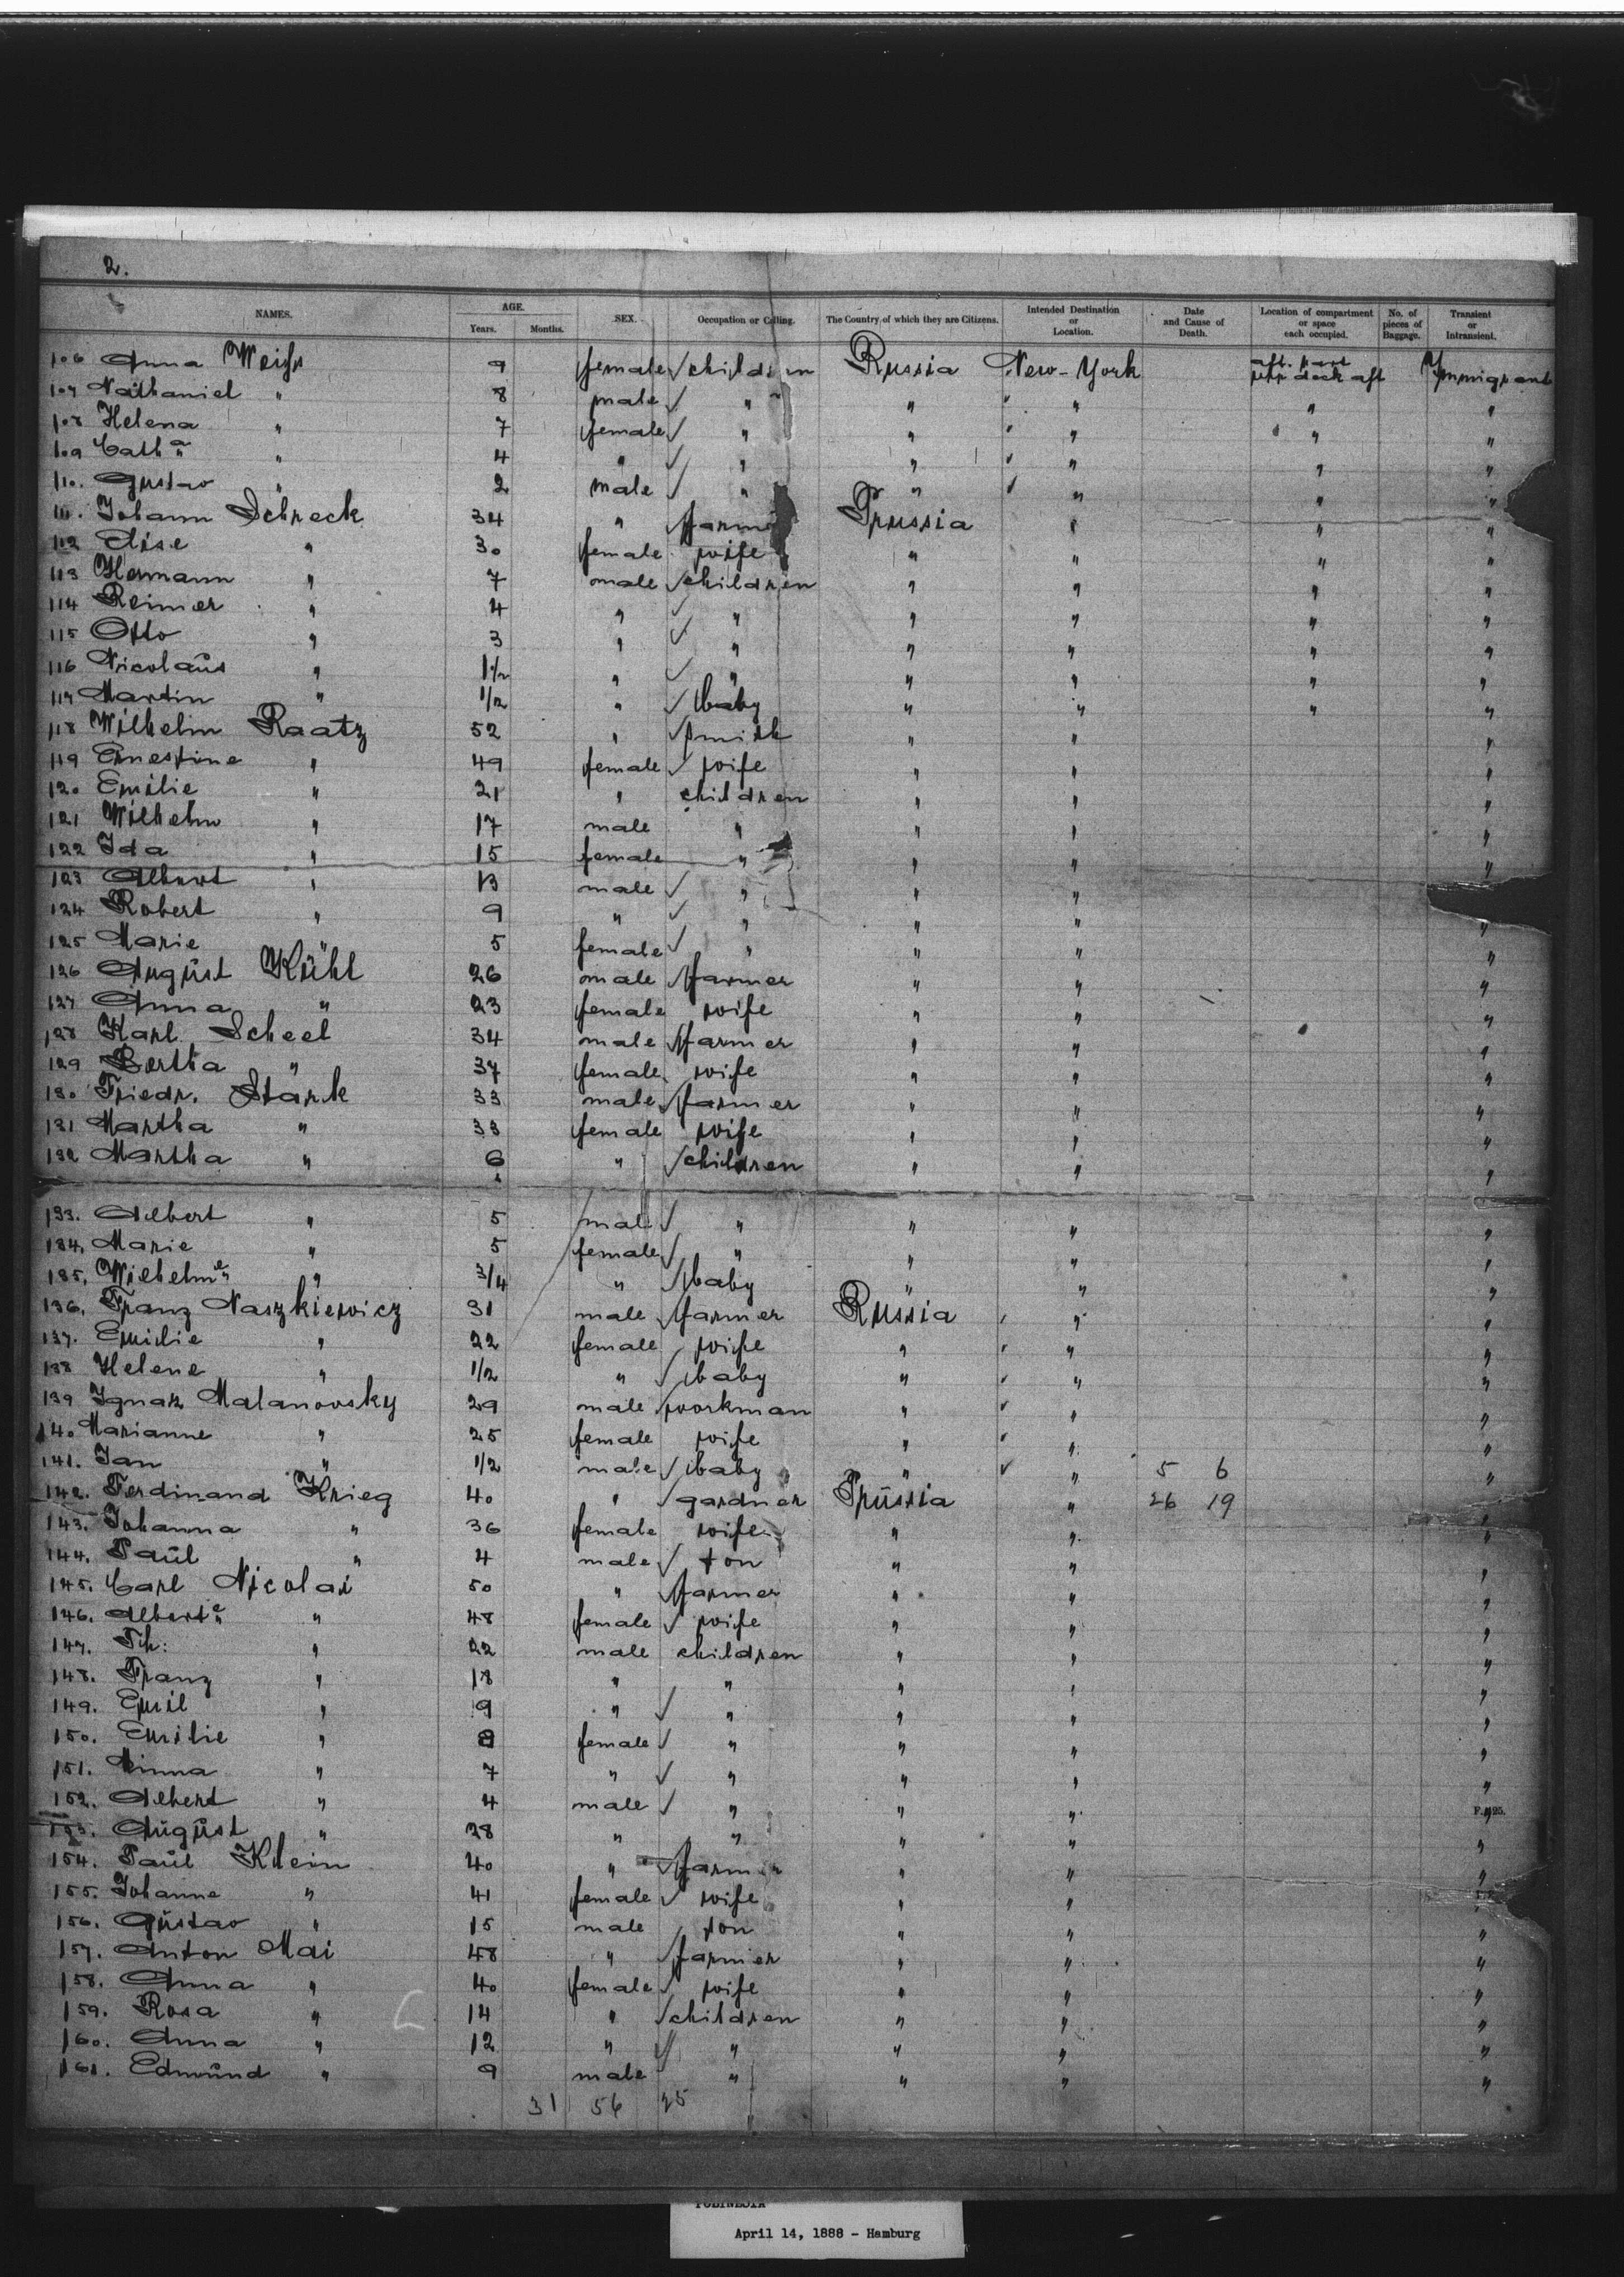 2.
NAMES. AGE. Years. Months. SEX. Occupation or Calling. The Country of which they are Citizens. Intended Destination or Location. Date and Cause of Death. Location of compartment or space each occupied. No. of pieces of Baggage. Transient or Intransient.
106 Anna Weiss 9 female children Russia New-York aft. part deck aft Immigrant
107 Nathaniel " 8 male " " " " "
108 Helena " 7 female " " " " "
109 Catha " 4 " " " " " "
110. Gustav " 2 male " " " " "
111. Johann Schreck 34 " farmer Prussia " " "
112 Elise " 30 female wife " " " "
113 Hermann " 7 male children " " " "
114 Reimer " 4 " " " " " "
115 Otto " 3 " " " " " "
116 Nicolaus " 1½ " " " " " "
117 Martin " 1/2 " baby " " " "
118 Wilhelm Raatz 52 " smith " " "
119 Ernestine " 49 female wife " " "
120 Emilie " 21 " children " " "
121 Wilhelm " 17 male " " " "
122 Ida " 15 female " " " "
123 Albert " 13 male " " "
124 Robert " 9 " " " " "
125 Marie " 5 female " " " "
126 August Kühl 26 male farmer " " "
127 Anna " 23 female wife " " "
128 Karl Scheel 34 male farmer " " "
129 Bertha " 37 female wife " " "
130 Friedr. Stark 33 male farmer " " "
131 Martha " 33 female wife " " "
132 Martha " 6 " children " " "
133. Albert " 5 male " " " "
134. Marie " 5 female " " " "
135. Wilhelme " 3/4 " baby " " "
136. Franz Naszkiewicz 31 male farmer Russia " "
137. Emilie " 22 female wife " " "
138 Helene " 1/2 " baby " " "
139 Ignaz Malanovsky 29 male workman " " "
140 Marianne " 25 female wife " " "
141. Jan " 1/2 male baby " " 5 6 "
142. Ferdinand Krieg 40 " gardner Prussia " 26 19 "
143. Johanna " 36 female wife " " "
144. Paul " 4 male son " " "
145. Carl Nicolai 50 " farmer " " "
146. Alberte " 48 female wife " " "
147. Th: " 22 male children " " "
148. Franz " 18 " " " " "
149. Emil " 9 " " " " "
150. Emilie " 8 female " " " "
151. Minna " 7 " " " " "
152. Albert " 4 male " " " "
153. August " 28 " " " " "
154. Paul Klein 40 " farmer " " "
155. Johanne " 41 female wife " " "
156. Gustav " 15 male son " " "
157. Anton Mai 48 " farmer " " "
158. Anna " 40 female wife " " "
159. Rosa " 14 " children " " "
160. Anna " 12 " " " " "
161. Edmund " 9 male " " " "
31 56 25
POLYNESIA
April 14, 1888 - Hamburg